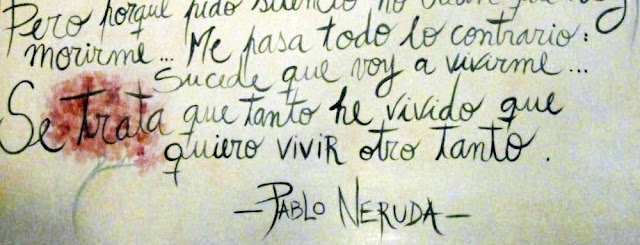 Pero porque pido silencio no crean que voy
morirme... Me pasa todo lo contrario:
Sucede que voy a vivirme...
Se trata que tanto he vivido que
quiero vivir otro tanto.
—Pablo Neruda—